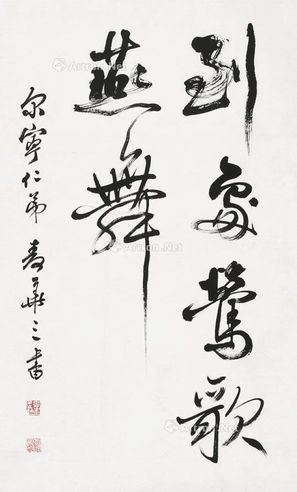 到處鶯歌
燕舞
尔寧仁弟 寿華三書
Artron.Net